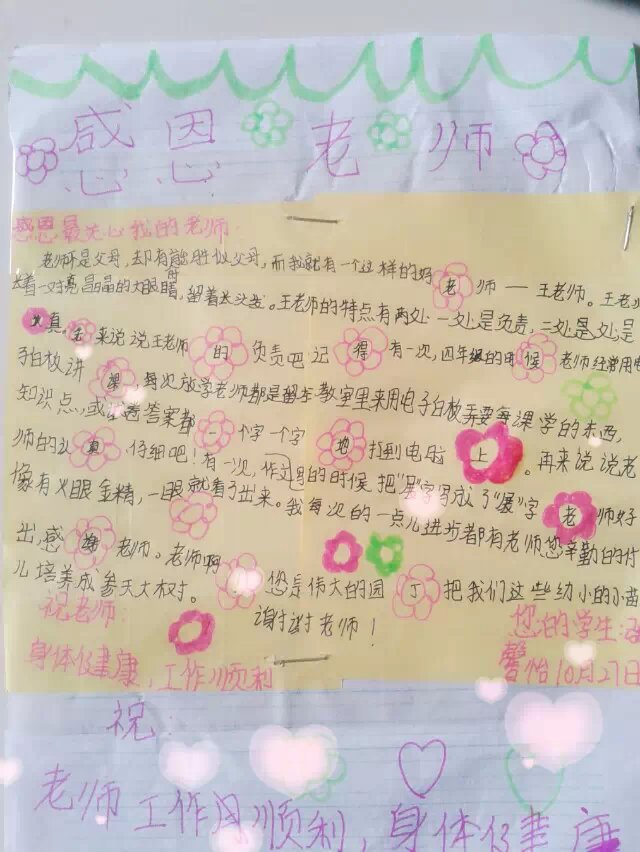 感恩老师
感恩最关心我的老师
老师不是父母,却有能胜似父母,而我就有一个这样的好老师——王老师。王老
着一对亮晶晶的大眼睛,留着长头发。王老师的特点有两处一处是负责,二处是处是
认真。先来说说王老师的负责吧记得有一次,四年级的时候老师经常用电
子白板讲课,每次放学老师都是留在教室里来用电子白板弄要每课学的东西,
知识点,或试卷答案都一个字一个字地打到电脑上。再来说说老
师的认真仔细吧!有一次,作文写的时候把"展"字写成了"展"字老师好
像有火眼金精,一眼就看了出来。我每次的一点儿进步者都有老师您辛勤的付
出,感谢老师。老师啊您是伟大的园丁把我们这些幼小的小苗
儿培养成参天大树。
谢谢老师!
祝老师:
身体健康,工作顺利
您的学生:
馨怡10月27日
祝:
老师工作顺利,身体健康